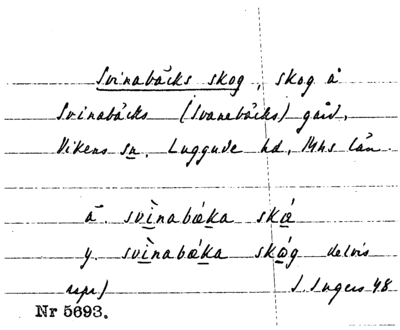 Svinabäcks skog, skog å
Svinabäcks (Svanebäcks) gård,
Vikens sn, Luggude hd, Mhs län.
ä. svìnabǽka skǽ
y. svìnabǽka skǿg delvis
rspr)
S. Ingers 48
Nr 5693.